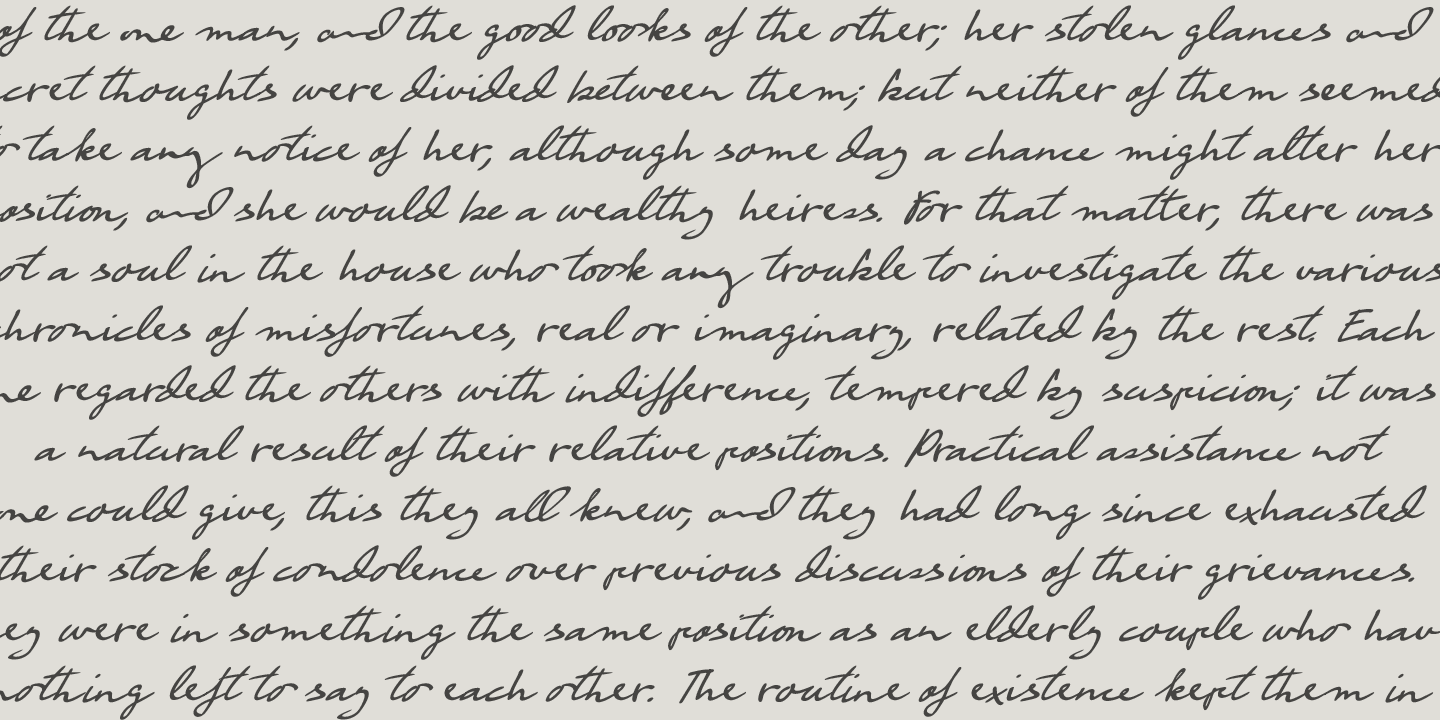 of the one man, and the good looks of the other; her stolen glances and
cret thoughts were divided between them; but neither of them seemed
to take any notice of her, although some day a chance might alter her
osition, and she would be a wealthy heiress. For that matter, there was
ot a soul in the house who took any trouble to investigate the various
chronicles of misfortunes, real or imaginary, related by the rest. Each
ne regarded the others with indifference, tempered by suspicion; it was
a natural result of their relative positions. Practical assistance not
one could give, this they all knew, and they had long since exhausted
their stock of condolence over previous discussions of their grievances.
ey were in something the same position as an elderly couple who hav
nothing left to say to each other. The routine of existence kept them in